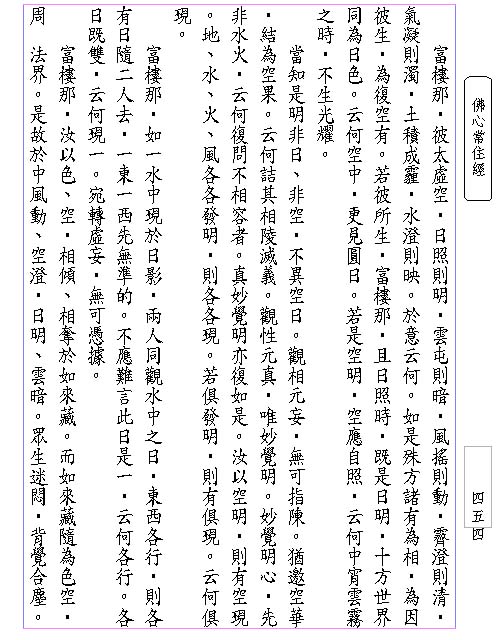 佛心常住經
富樓那．彼太虛空．日照則明．雲屯則暗．風搖則動．霽澄則清．
氣凝則濁．土積成霾．水澄則映。於意云何。如是殊方諸有為相．為因
彼生．為復空有。若彼所生．富樓那．且日照時．既是日明．十方世界
同為日色。云何空中．更見圓日。若是空明．空應自照．云何中宵雲霧
之時．不生光耀。
當知是明非日、非空．不異空日。觀相元妄．無可指陳。猶邀空華
．結為空果。云何詰其相陵滅義。觀性元真．唯妙覺明。妙覺明心．先
非水火．云何復問不相容者。真妙覺明亦復如是。汝以空明．則有空現
。地、水、火、風各各發明．則各各現。若俱發明．則有俱現。云何俱
現。
富樓那．如一水中現於日影．兩人同觀水中之日．東西各行．則各
有日隨二人去．一東一西先無準的。不應難言此日是一．云何各行。各
日既雙．云何現一。宛轉虛妄．無可憑據。
富樓那．汝以色、空．相傾、相奪於如來藏。而如來藏隨為色空．
周　法界。是故於中風動、空澄．日明、雲暗。眾生迷悶．背覺合塵。
四五四